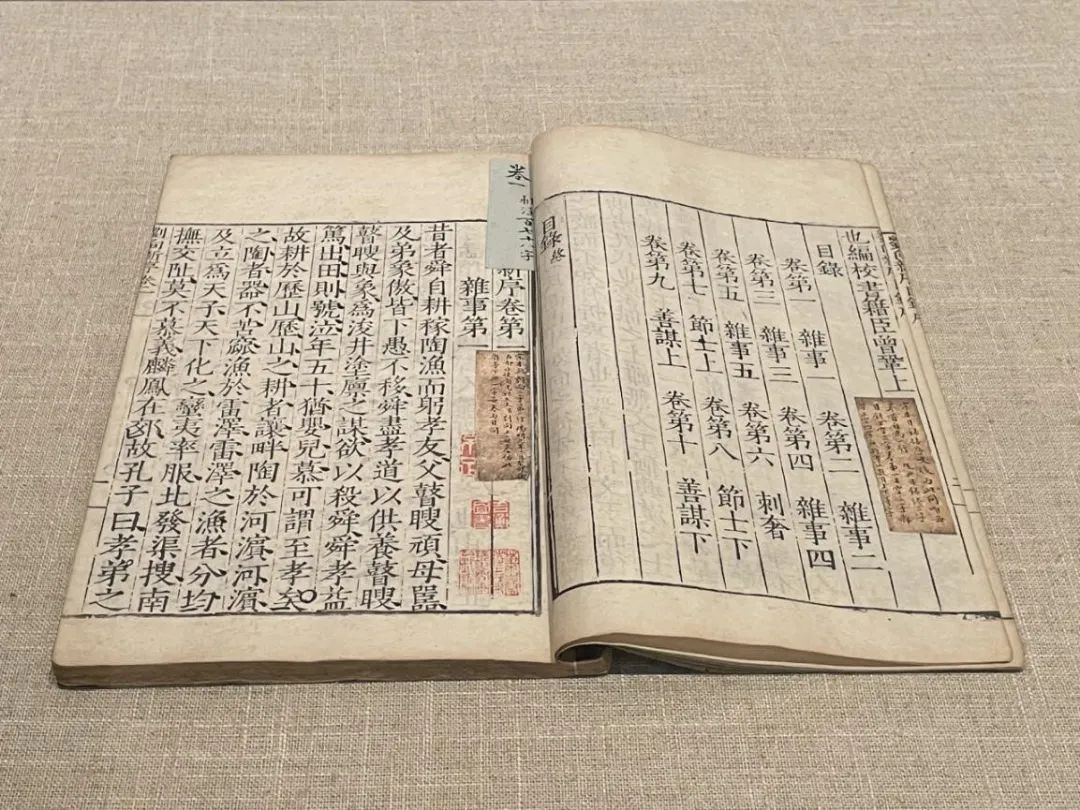 也編校書籍臣曾鞏上
目錄
卷第一 雜事一 卷第二 雜事二
卷第三 雜事三 卷第四 雜事四
卷第五 雜事五 卷第六 刺奢
卷第七 節士上 卷第八 節士下
卷第九 善謀上 卷第十 善謀下
目錄終
卷一
新序卷第一
雜事第一
昔者舜自耕稼陶漁而躬孝友父瞽瞍頑母嚚
及弟象傲皆下愚不移舜盡孝道以供養瞽瞍
瞽瞍與象爲浚井塗廩之謀欲以殺舜舜孝益
篤出田則號泣年五十猶嬰兒慕可謂至孝矣
故耕於歷山歷山之耕者讓畔陶於河濱河濱
之陶者器不苦窳漁於雷澤雷澤之漁者分均
及立爲天子天下化之蠻夷率服北發渠搜南
撫交阯莫不慕義麟鳳在郊故孔子曰孝弟之